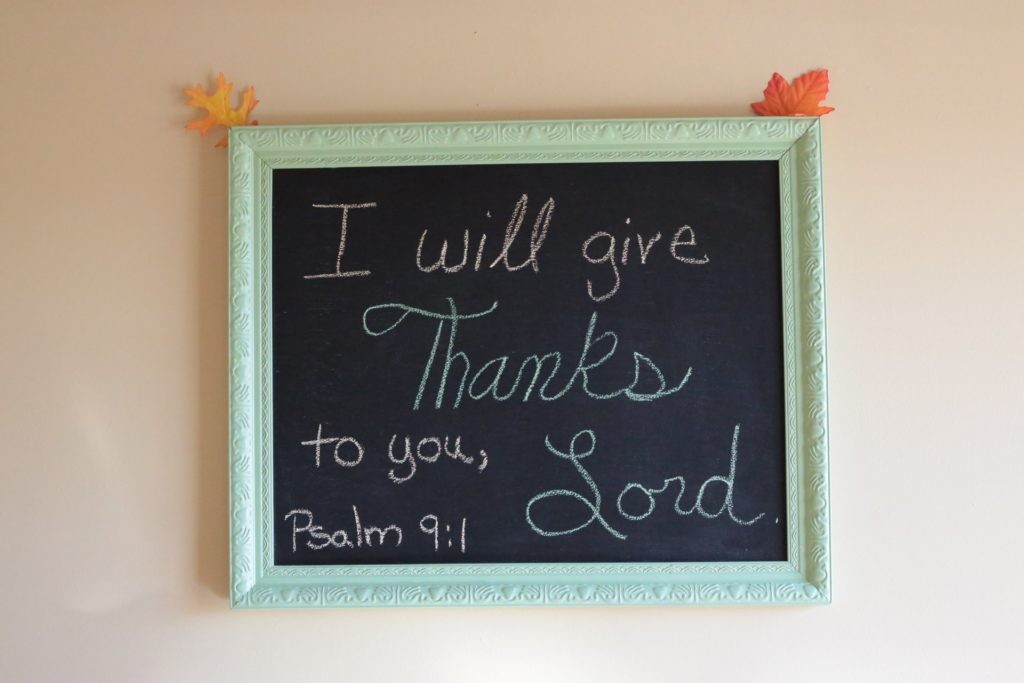 I will give
Thanks
to you, Lord.
Psalm 9:1